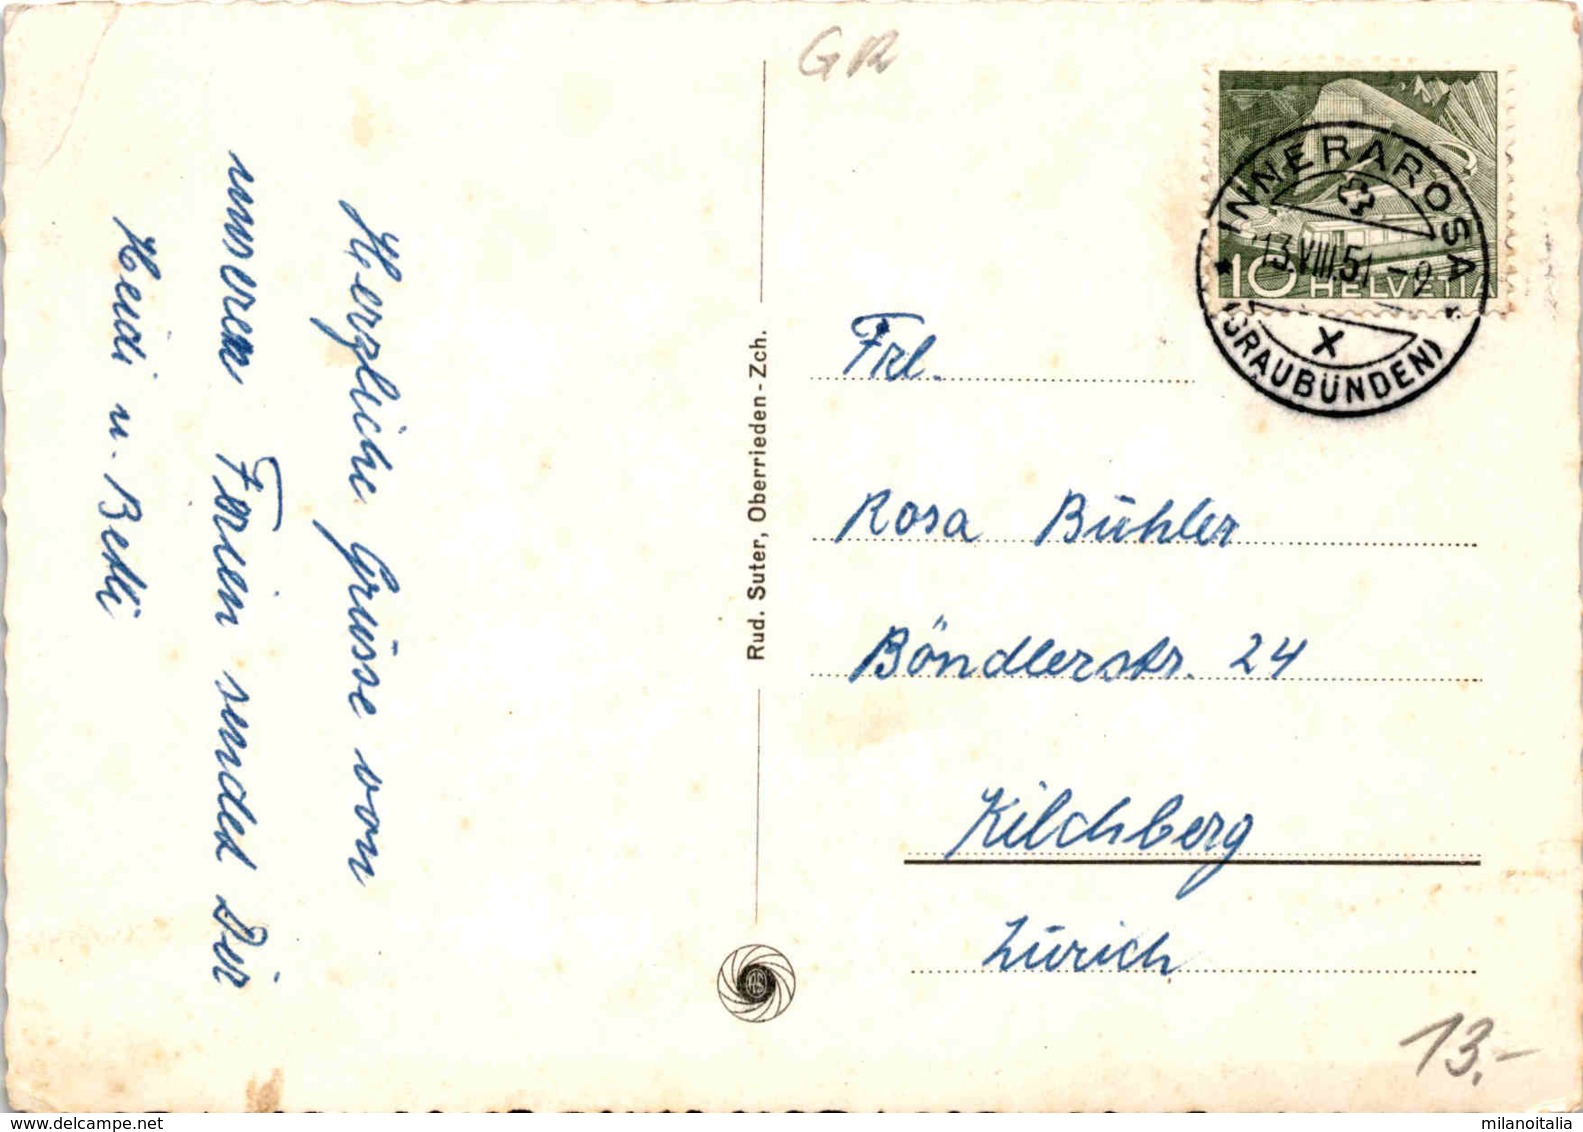 Herzliche Grüsse von
unseren Ferien sendet Dir
Heidi u. Betti
Rud. Suter, Oberrieden - Zch.
RS
GR
INNERAROSA
13.VIII.51 - 9
X
(GRAUBÜNDEN)
10 HELVETIA
Frl.
Rosa Bühler
Böndlerstr. 24
Kilchberg
Zürich
13.-
delcampe.net
milanoitalia